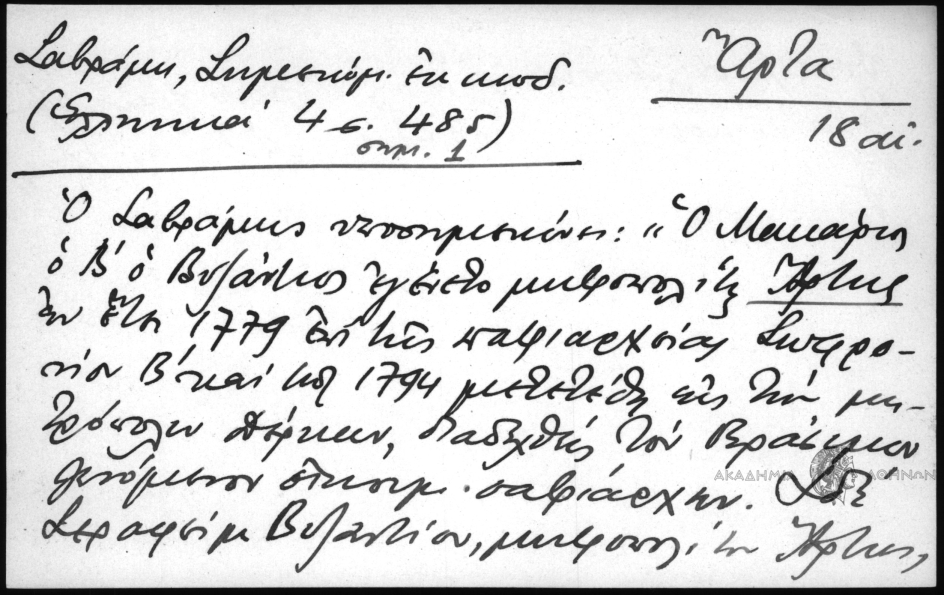 Σαβράμη, Σημειώμ. ἐκ κωδ.
(Ἑλληνικά 4 σ. 485)
σημ. 1
Ἄρτα
18 αἰ.
Ὁ Σαβράμης ὑποσημειώνει: "Ὁ Μακάριος
ὁ Β´ ὁ Βυζάντιος ἐγένετο μητροπολίτης Ἄρτης
ἐν ἔτει 1779 ἐπὶ τῆς πατριαρχείας Σωφρο-
νίου Β´ καὶ τῷ 1794 μετετέθη εἰς τὴν μη-
τρόπολιν Δέρκων, διαδεχθείς τὸν Γεράσιμον
γενόμενον οἰκουμ. πατριάρχην.
Σεραφεὶμ Βυζαντίου, μητροπολίτου Ἄρτης,
ΑΚΑΔΗΜΙΑ ΑΘΗΝΩΝ